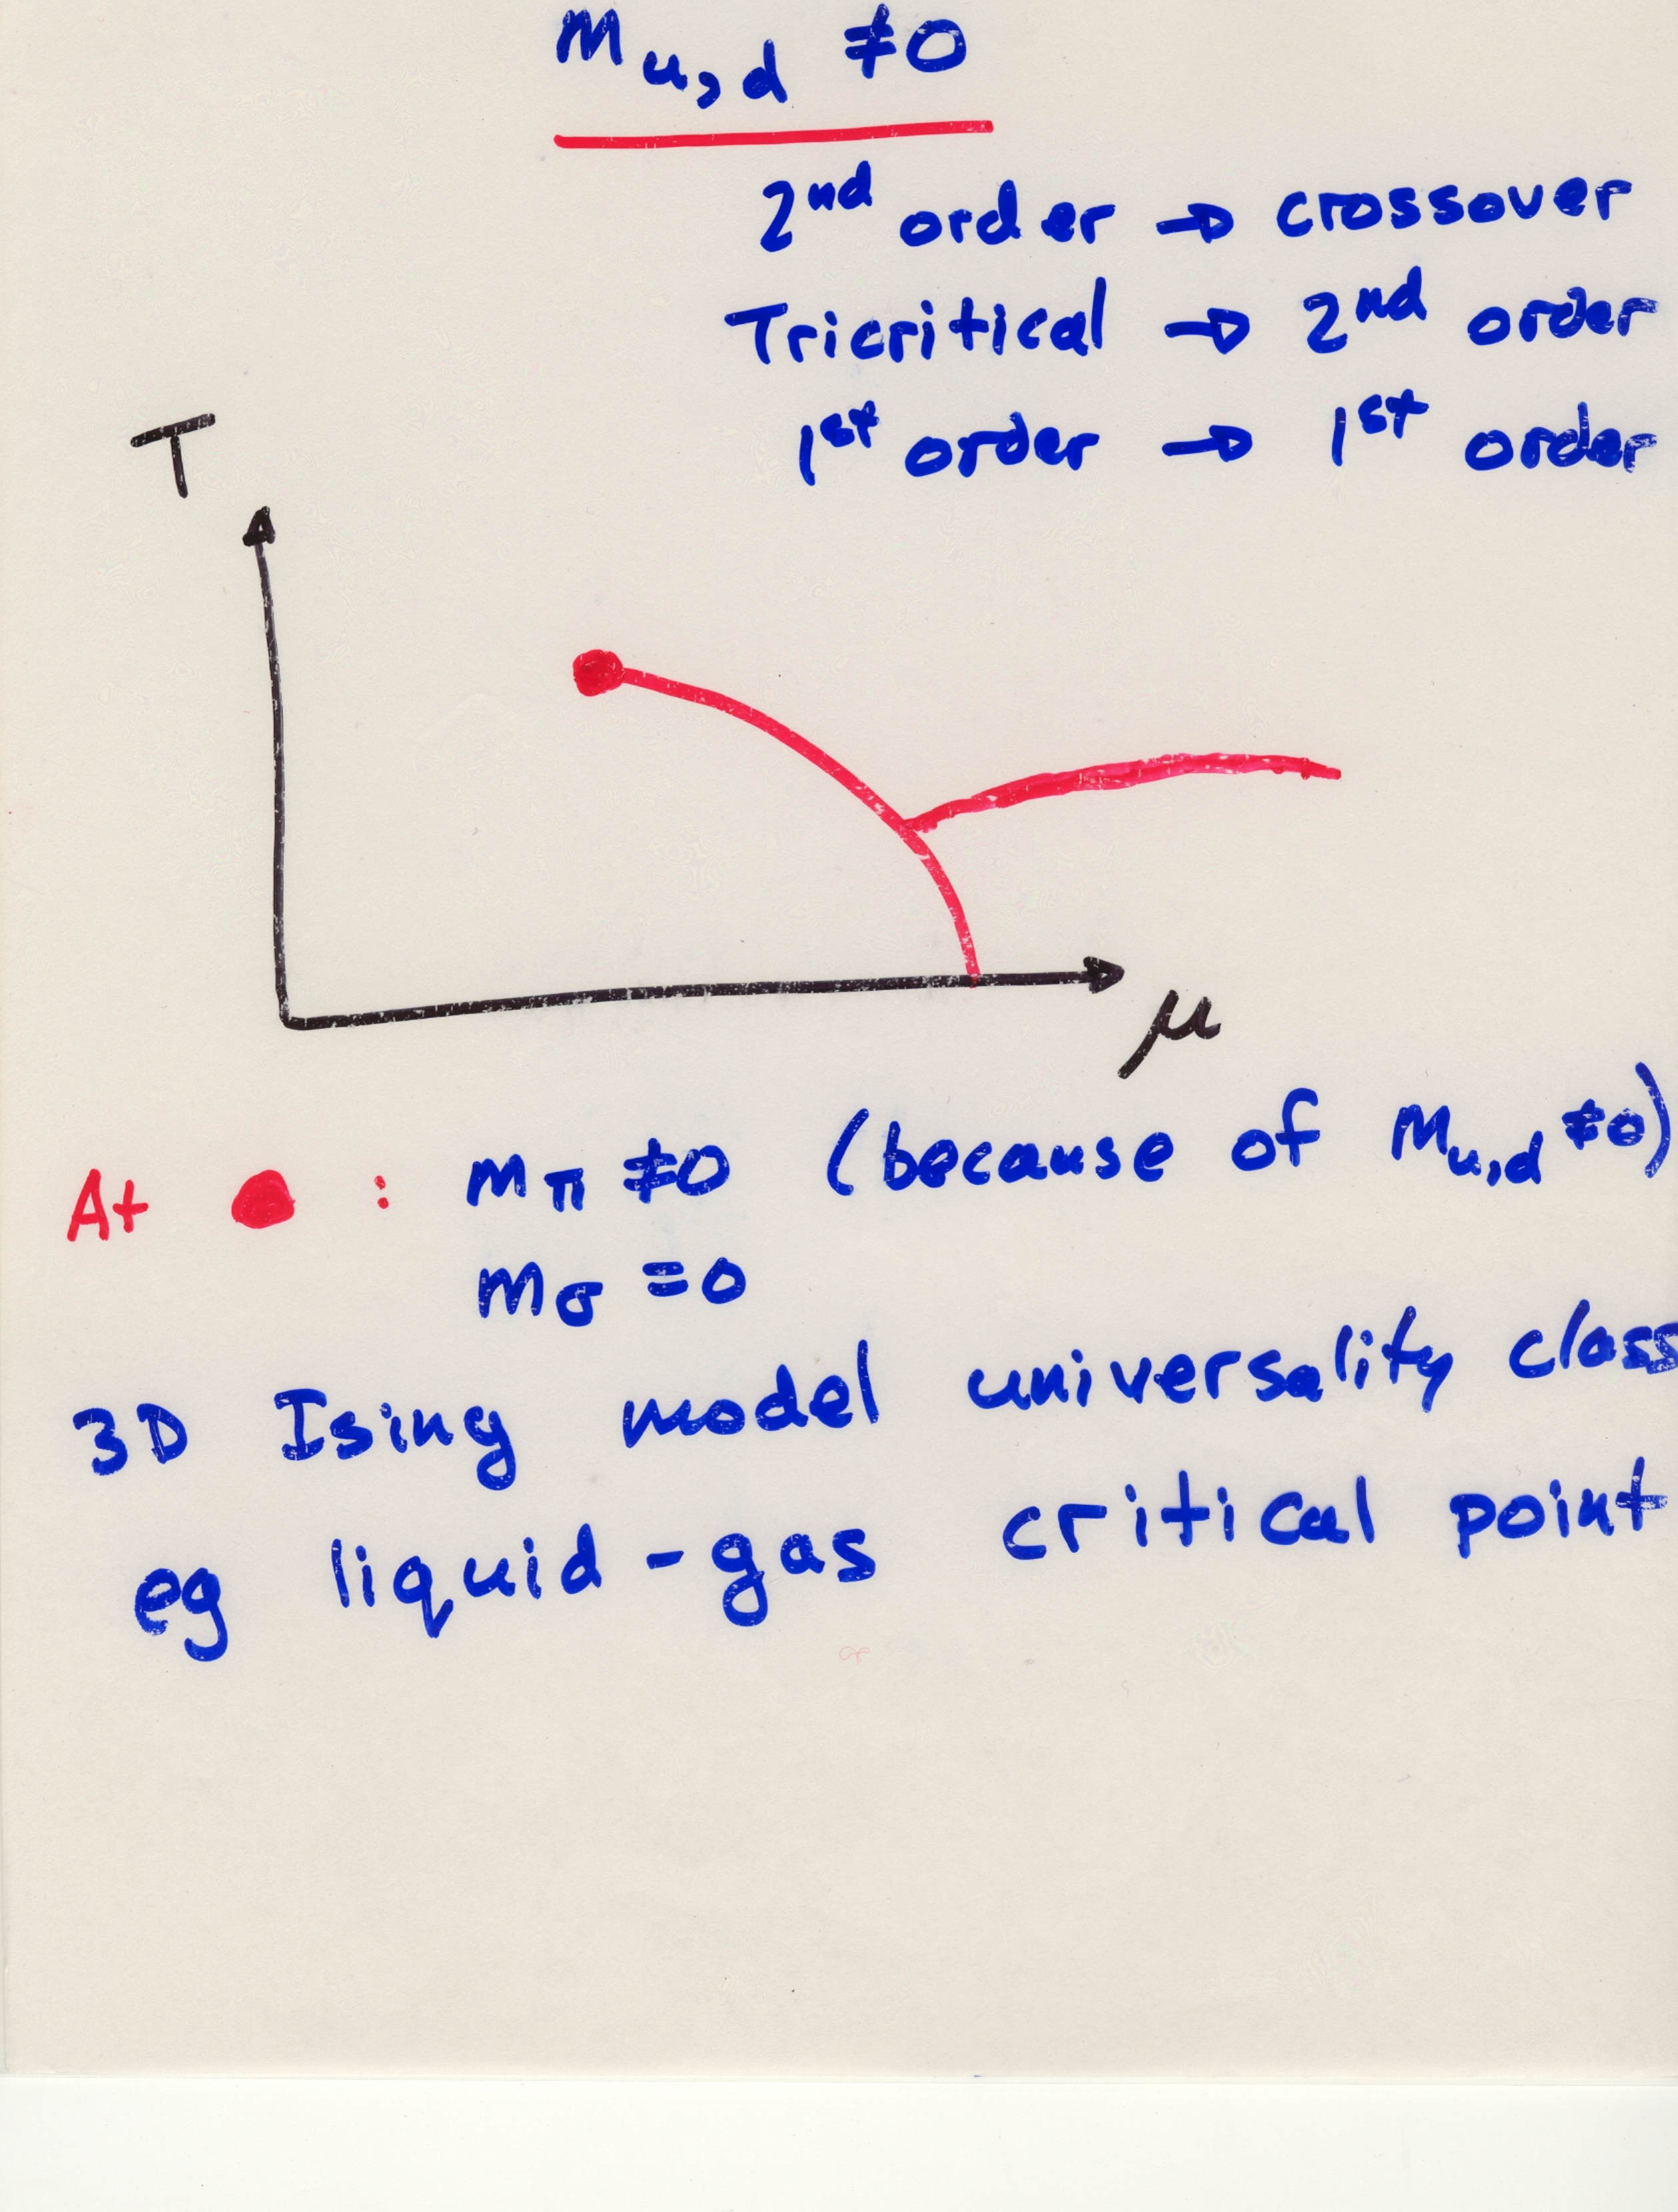 m u,d ≠0
2nd order → crossover
Tricritical → 2nd order
1st order → 1st order
T
μ
At ● : mπ ≠0 (because of mu,d ≠0)
mσ =0
3D Ising model universality class
eg liquid-gas critical point